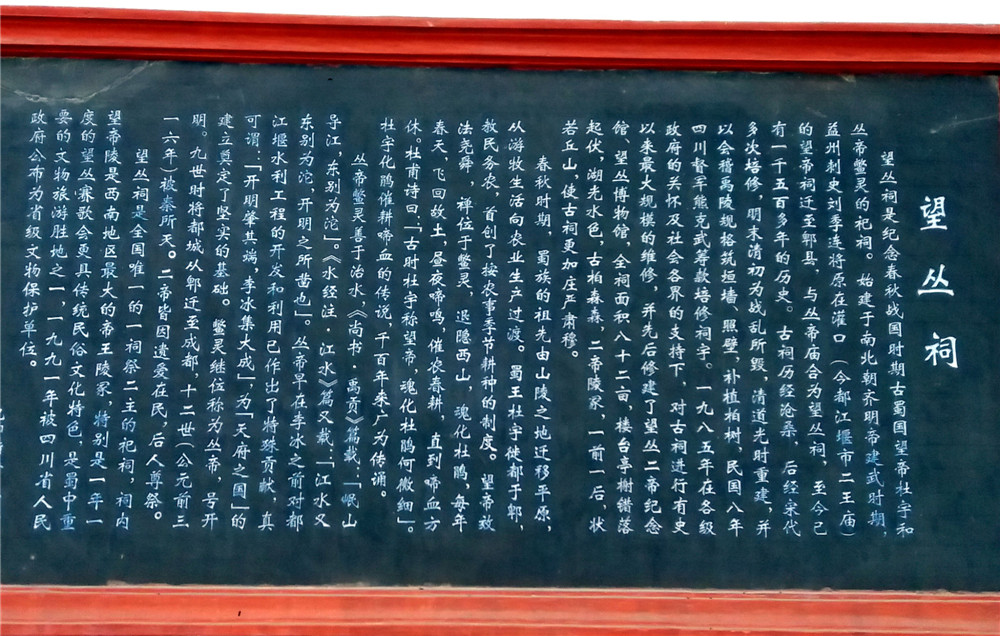 望丛祠
望丛祠是纪念春秋战国时期古蜀国望帝杜宇和
丛帝鳖灵的祀祠。始建于南北朝齐明帝建武时期，
益州刺史刘季连将原在灌口（今都江堰市二王庙）
的望帝祠迁至郫县，与丛帝庙合为望丛祠，至今已
有一千五百多年的历史。古祠历经沧桑，后经宋代
多次培修，明末清初为战乱所毁，清道光时重建，并
以会稽禹陵规格筑垣墙、照壁，补植柏树，民国八年
四川督军熊克武筹款培修祠宇。一九八五年在各级
政府的关怀及社会各界的支持下，对古祠进行有史
以来最大规模的维修，并先后修建了望丛二帝纪念
馆、望丛博物馆，全祠面积八十二亩，楼台亭榭错落
起伏，湖光水色，古柏森森，二帝陵冢，一前一后，状
若丘山，使古祠更加庄严肃穆。
春秋时期，蜀族的祖先由山陵之地迁移平原，
从游牧生活向农业生产过渡。蜀王杜宇徙都于郫，
教民务农，首创了按农事季节耕种的制度。望帝效
法尧舜，禅位于鳖灵，退隐西山，魂化杜鹃，每年
春天，飞回故土，昼夜啼鸣，催农春耕，直到啼血方
休。杜甫诗曰「古时杜宇称望帝，魂化杜鹃何微细」。
杜宇化鹃催耕啼血的传说，千百年来广为传诵。
丛帝鳖灵善于治水，《尚书·禹贡》篇载：「岷山
导江，东别为沱」。《水经注·江水》篇又载：「江水又
东别为沱，开明之所凿也」。丛帝早在李冰之前对都
江堰水利工程的开发和利用已作出了特殊贡献，真
可谓：「开明肇其端，李冰集大成」，为「天府之国」的
建立奠定了坚实的基础。鳖灵继位称为丛帝，号开
明。九世时将都城从郫迁至成都，十二世（公元前三
一六年）被秦所灭。二帝皆因遗爱在民，后人尊祭。
望丛祠是全国唯一的一祠祭二主的祀祠，祠内
望帝陵是西南地区最大的帝王陵冢，特别是一年一
度的望丛赛歌会更具传统民俗文化特色，是蜀中重
要的文物旅游胜地之一，一九九一年被四川省人民
政府公布为省级文物保护单位。